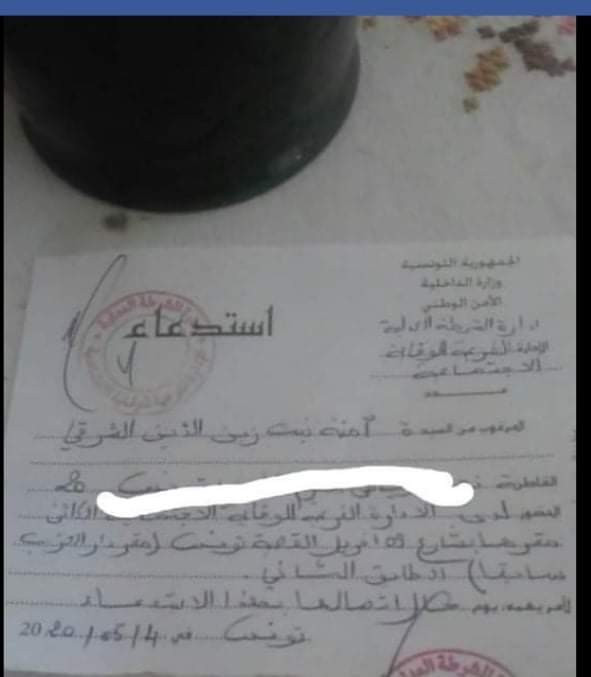 الجمهورية التونسية
وزارة الداخلية
الأمن الوطني
إدارة الشرطة العدلية
الإدارة الفرعية للوقاية
الاجتماعية
استدعاء
المرغوب من السيدة آمنة بنت زين الدين الشرقي
القاطنة
الحضور لدى الإدارة الفرعية للوقاية الاجتماعية الكائن
مقرها بشارع 09 أفريل القصبة تونس (مقر دار الحزب
سابقا) الطابق الثاني.
حال اتصالها بهذا الاستدعاء
تونس في 2020/05/4